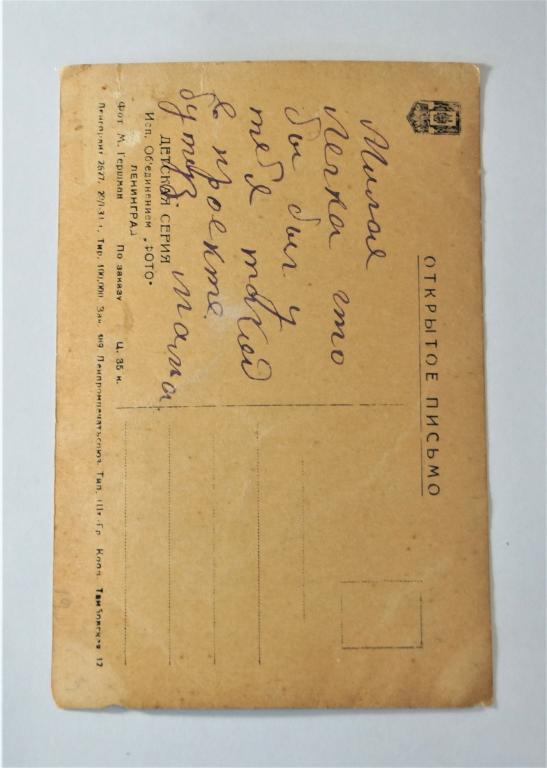 ОТКРЫТОЕ ПИСЬМО
Милая
Легка что
бы был у
тебя такой
в проекте.
будет мама
ДЕТСКАЯ СЕРИЯ
Исп. Об'единением „ФОТО“
ЛЕНИНГРАД
Фот. М. Гершман По заказу Ц. 35 к.
Ленгорлит 2677. Тир. 100,000 Зак. Ленпромпечатьсоюз. Тип. Кооп. Тамбовская 12